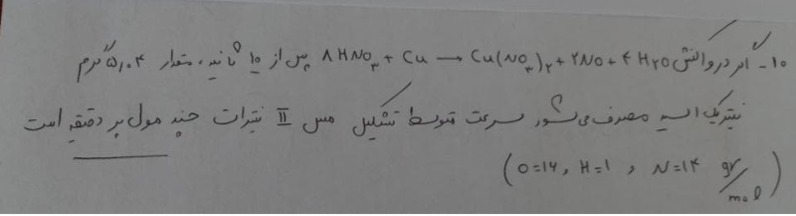 ۱۰- اگر در واکنش ۸HNO۳ + Cu → Cu(NO۳)۲ + ۲NO + ۴H۲O پس از ۱۰ ثانیه، مقدار ۵۱٫۰۴ گرم
نیتریک اسید مصرف می‌شود سرعت متوسط تشکیل مس II نیترات چند مول بر دقیقه است
(O=۱۶, H=۱, N=۱۴ gr/mol)